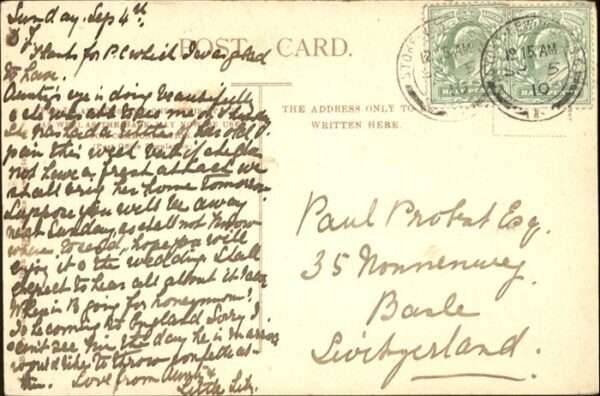 Sunday. Sep 4th
POST CARD.
Thanks for P.C which I was glad
to have.
Auntie's eye is doing beautifully
pain this week but if she does
not have a fresh attack we
shall bring her home tomorrow
I suppose you will be away
next Sunday, so shall not know
where to send, hope you will
enjoy it & the wedding I shall
expect to hear all about it later
Where is B going for honeymoon?
Is he coming to England Sorry I
can't see him the day he is married
would like to throw confetti at
Love from Aunty &
Little Liz.
THE ADDRESS ONLY TO
WRITTEN HERE.
Paul Probst Esq.
35 Nonnenweg
Basle
Switzerland.
12 15 AM
5
10